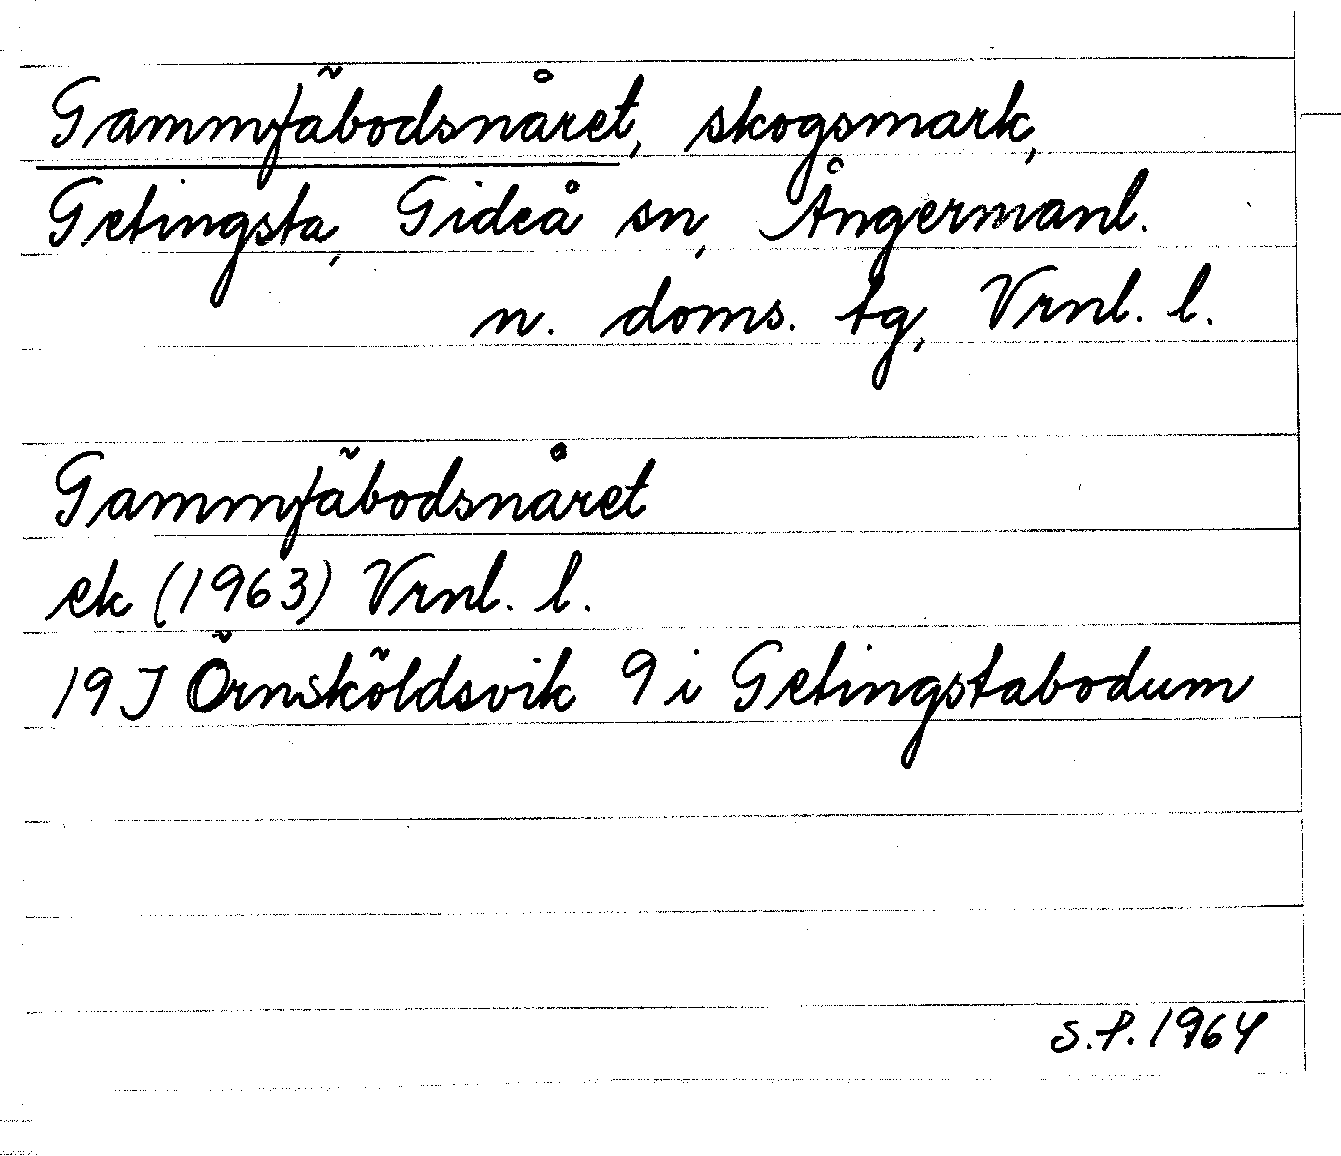 Gammfäbodsnåret, skogsmark,
Getingsta, Gideå sn, Ångermanl.
n. doms. tg, Vrnl. l.
Gammfäbodsnåret
ek (1963) Vrnl. l.
19J Örnsköldsvik 9 i Getingstabodum
S.P. 1964